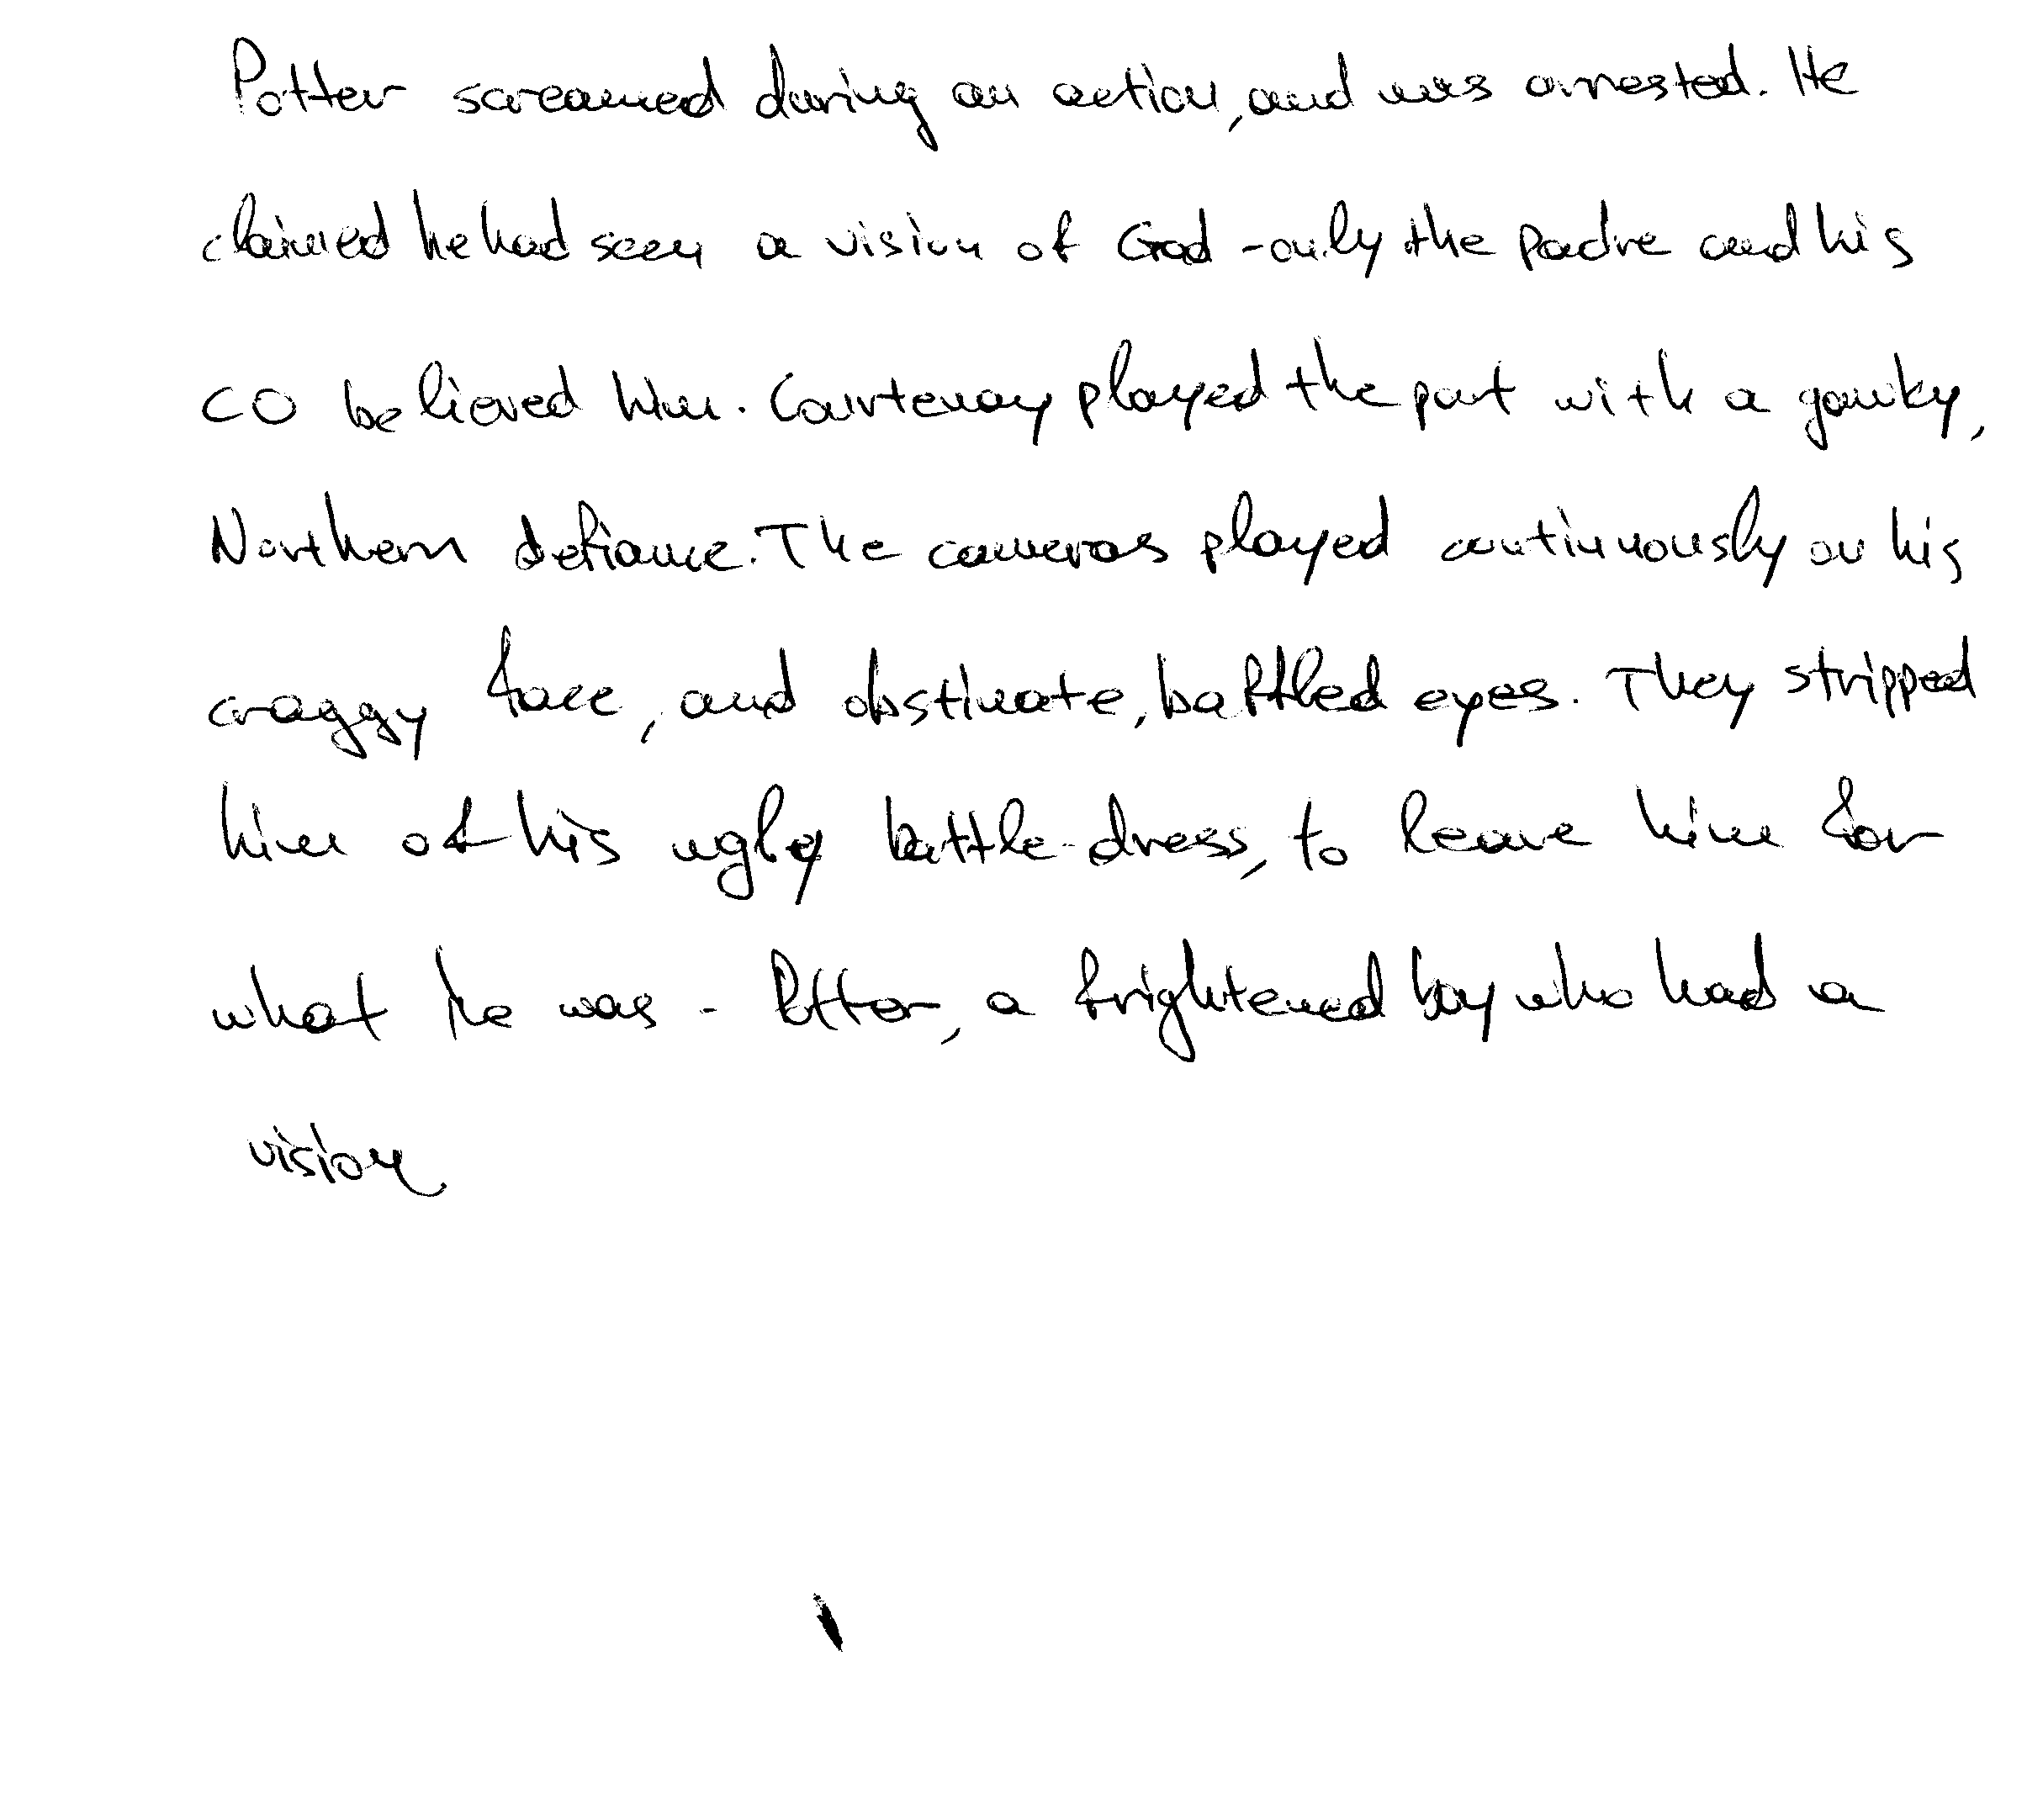 Potter screamed during an action, and was arrested. He
claimed he had seen a vision of God - only the padre and his
CO believed him. Courtenay played the part with a gawky,
Northern defiance. The cameras played continuously on his
craggy face, and obstinate, baffled eyes. They stripped
him of his ugly battle-dress, to leave him for
what he was - Potter, a frightened boy who had a
vision.